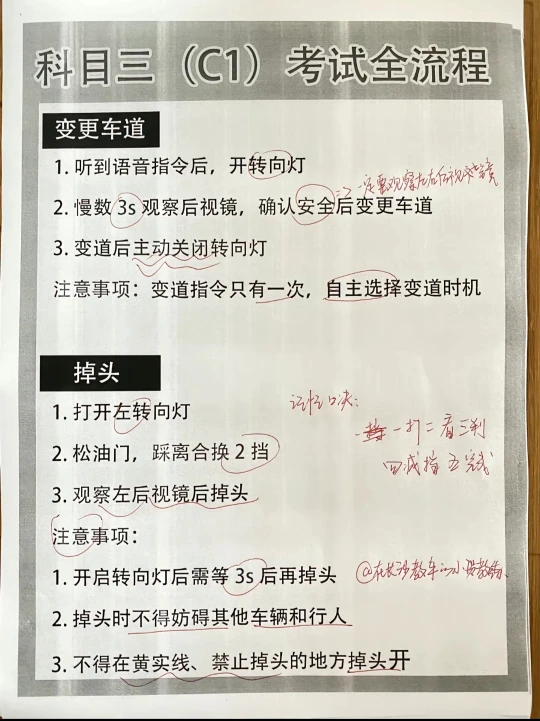 科目三（C1）考试全流程
变更车道
1. 听到语音指令后，开转向灯
2. 慢数 3s 观察后视镜，确认安全后变更车道
=> 一定要观察左右后视镜
3. 变道后主动关闭转向灯
注意事项：变道指令只有一次，自主选择变道时机
掉头
1. 打开左转向灯
记忆口决：
2. 松油门，踩离合换 2 挡
一打二看三刹
四减挡五完成
3. 观察左后视镜后掉头
注意事项：
1. 开启转向灯后需等 3s 后再掉头
@在长沙教车的小
2. 掉头时不得妨碍其他车辆和行人
3. 不得在黄实线、禁止掉头的地方掉头开